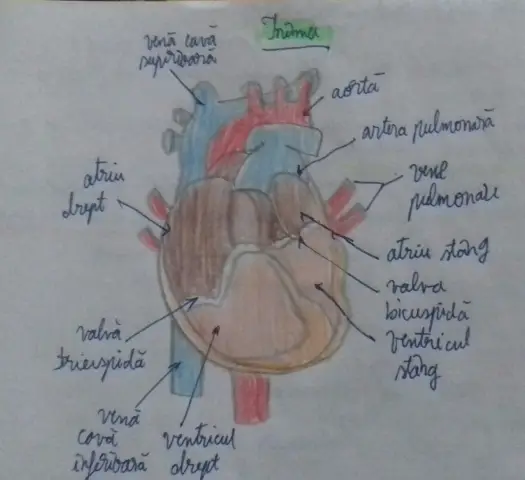 Inima
venă cavă
superioară
aortă
artera pulmonară
vene
pulmonare
atriu
drept
atriu stâng
valva
bicuspidă
ventricul
stâng
valvă
tricuspidă
venă
cavă
inferioară
ventricul
drept